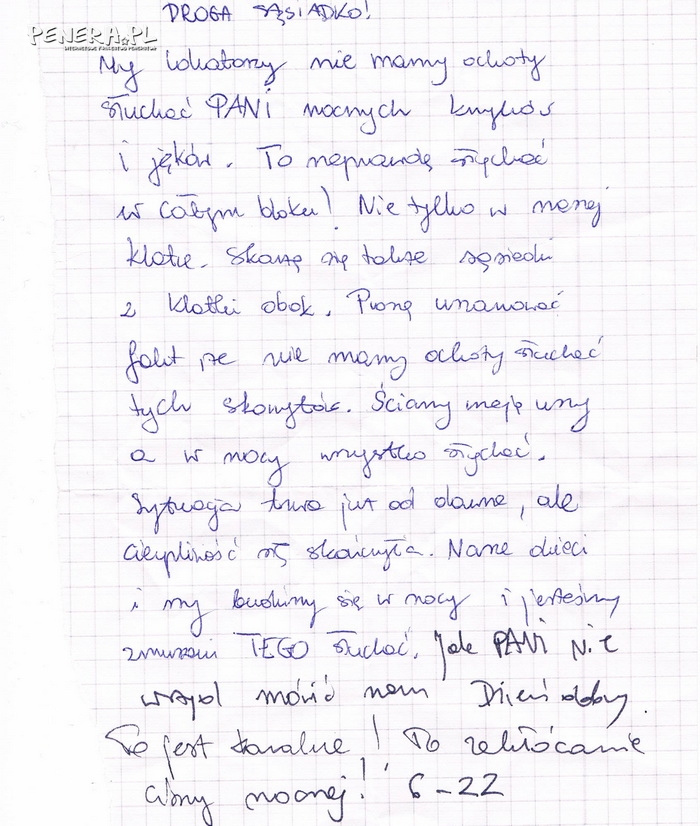 DROGA SĄSIADKO!
PENERA.PL
My lokatorzy nie mamy ochoty
słuchać PANI nocnych krzyków
i jęków. To naprawdę słychać
w całym bloku! Nie tylko w naszej
klatce. Skarżą się także sąsiedzi
z klatki obok. Proszę uszanować
fakt że nie mamy ochoty słuchać
tych skowytów. Ściany mają uszy
a w nocy wszystko słychać.
Sytuacja trwa już od dawna, ale
cierpliwość się skończyła. Nasze dzieci
i my budzimy się w nocy i jesteśmy
zmuszani TEGO słuchać. Jak PANI nie
wstyd mówić nam Dzień dobry.
To jest karalne! To zakłócanie
ciszy nocnej! 6-22